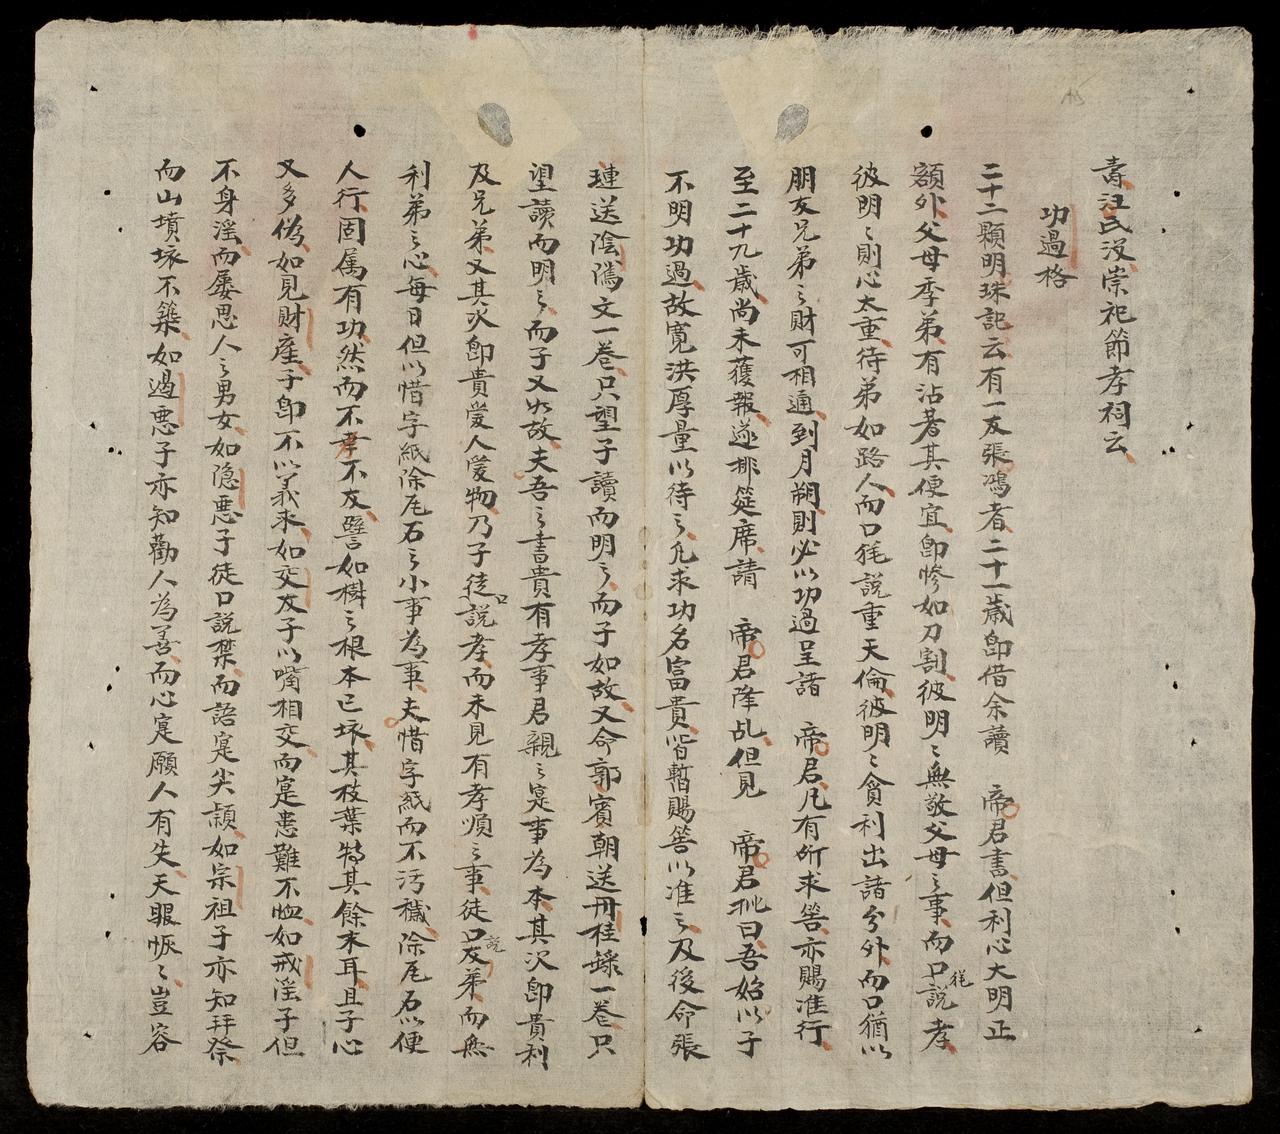 壽汪氏沒崇祀節孝祠云
功過格
二十二顆明珠記云有一友張鴻者二十一歲即借余讀 帝君書但利心大明正
額外父母季弟有沾著其便宜即慘如刀割彼明〻無敬父母之事而口說徒孝
彼明〻則心太重待弟如路人而口徒說重天倫彼明〻貪利出諸分外而口猶以
朋友兄弟之財可相通到月朔則必以功過呈諸 帝君凡有所求筶亦賜准行
至二十九歲尚未獲報遂排筵席請 帝君降乩但見 帝君批曰吾始以子
不明功過故寬洪厚量以待之凡求功名富貴皆暫賜筶以准之及後命張
璉送陰隲文一卷只望子讀而明之而子如故又命郭賓朝送丹桂錄一卷只
望讀而明之而子又如故夫吾之書貴有孝事君親之寔事為本其次即貴利
及兄弟又其次即貴愛人愛物乃子徒口說孝而未見有孝順之事徒口說友弟而無
利弟之心每日但以惜字紙除瓦石之小事為事夫惜字紙而不污穢除瓦石以便
人行固属有功然而不孝不友譬如樹之根本已坏其枝葉特其餘末耳且子心
又多偽如見財產子即不以義求如交友子以嘴相交而寔患難不恤如戒淫子但
不身淫而屡思人之男女如隐惡子徒口說禁而語寔尖頴如宗祖子亦知拜祭
而山墳坏不築如過惡子亦知勸人為善而心寔願人有失天眼恢〻豈容